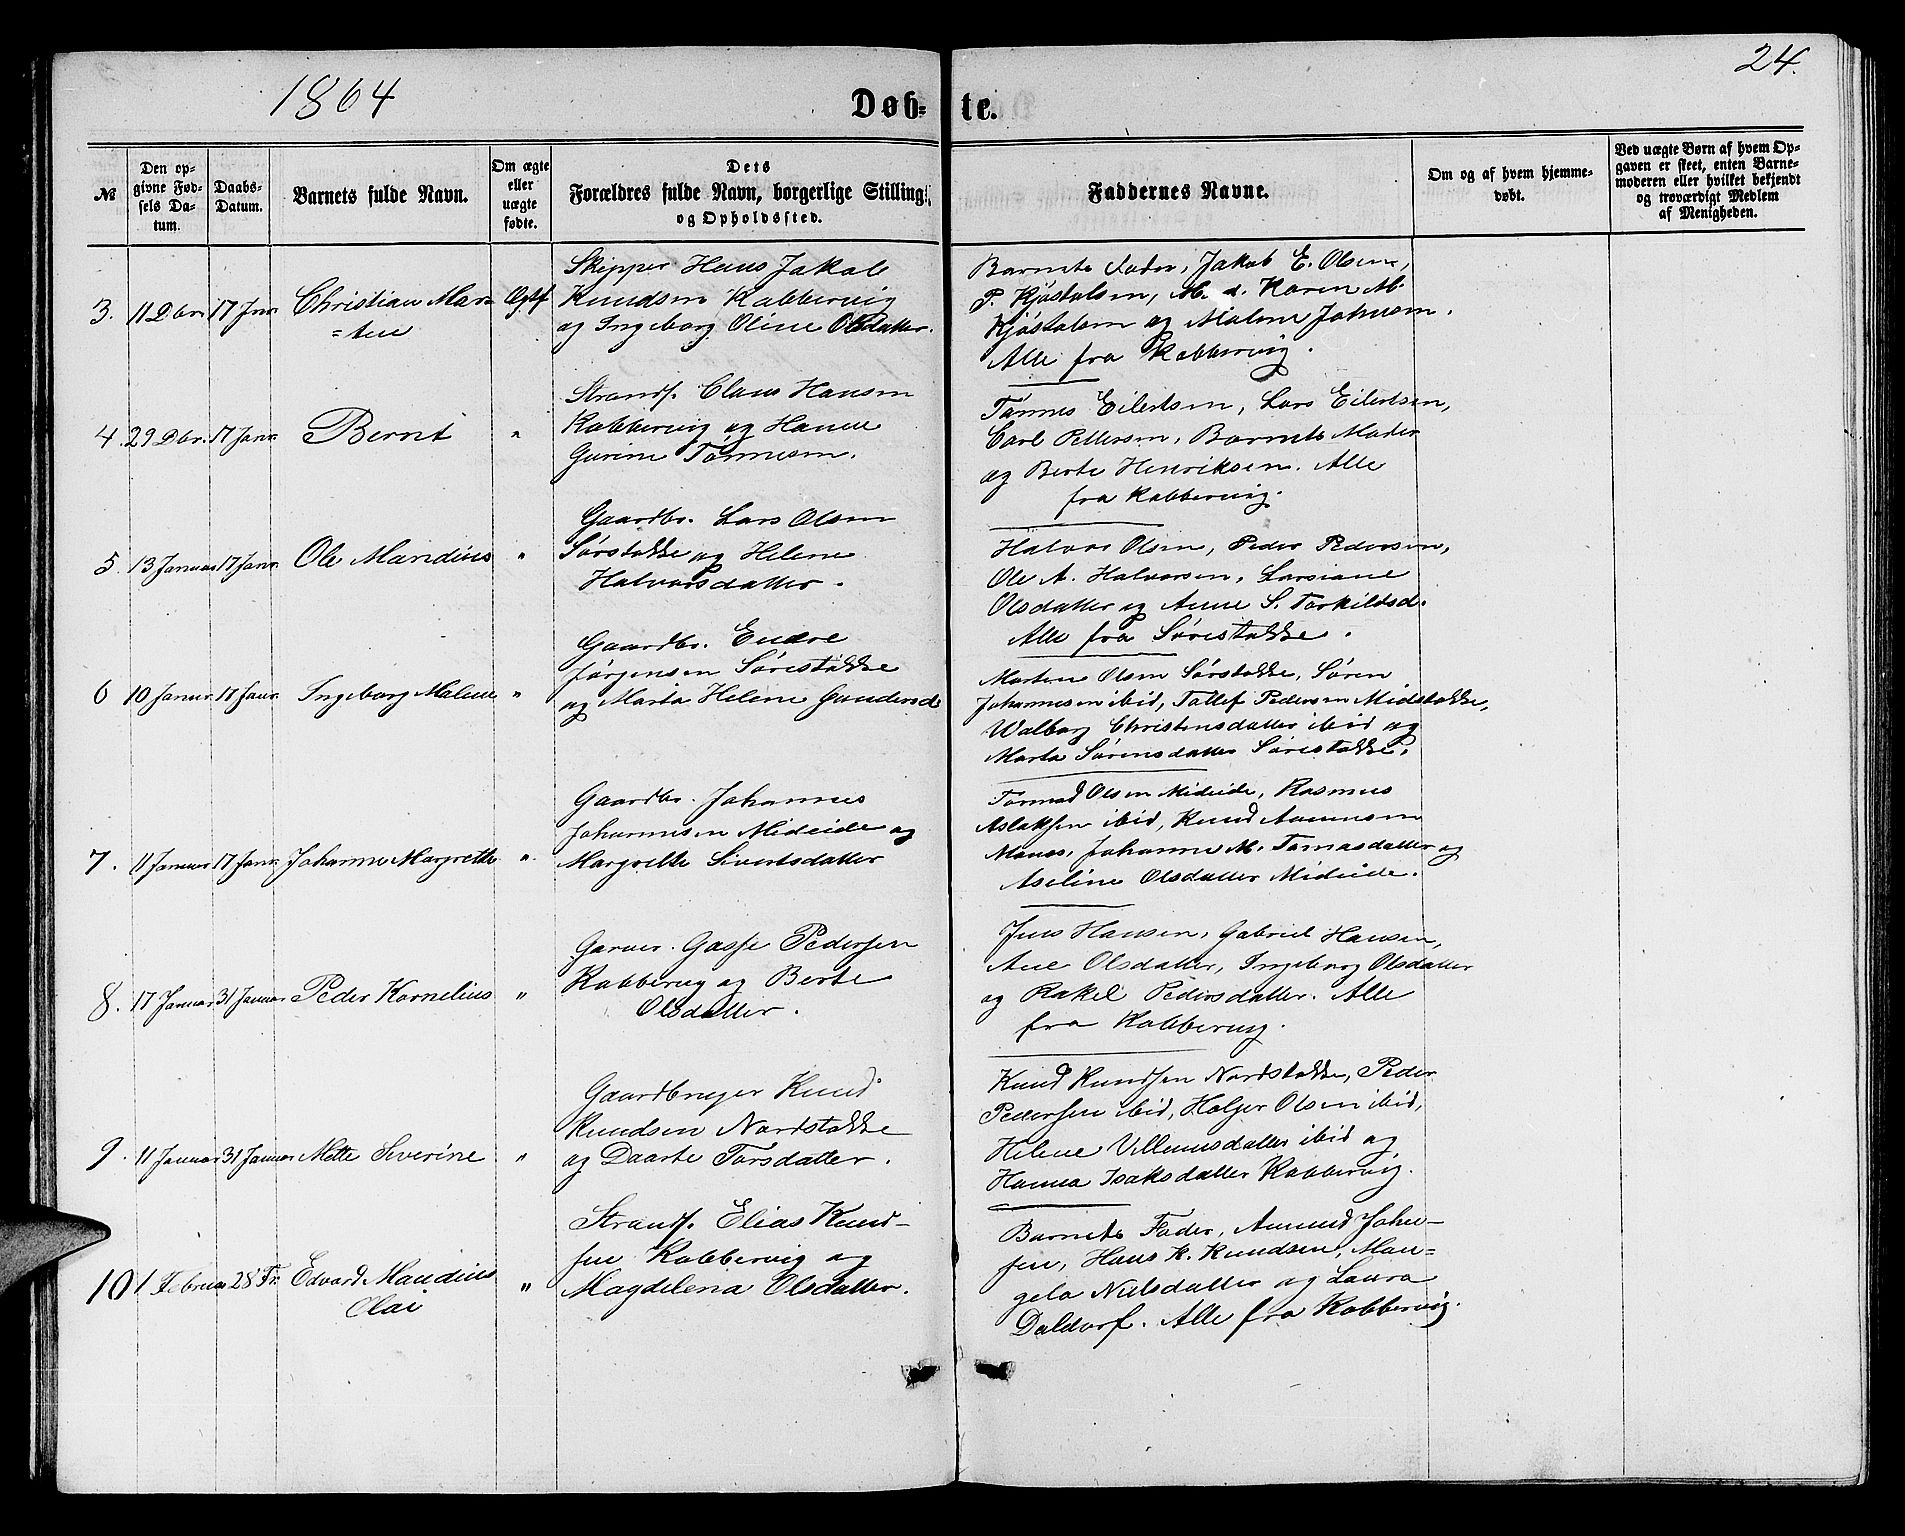 1864
Døb-te.
24.
№
Den opgivne Fødsels Datum.
Daabs-Datum.
Barnets fulde Navn.
Om ægte eller uægte fødte.
Dets Forældres fulde Navn, borgerlige Stilling, og Opholdssted.
Faddernes Navne.
Om og af hvem hjemmedøbt.
Ved uægte Børn af hvem Opgaven er skeet, enten Barnemoderen eller hvilket bekjendt og troværdigt Medlem af Menigheden.
3. 11 Dbr. 17 Jnr. Christian Mar=
=ten
Skipper Hans Jakob
Knudsen Kobbervig
og Ingeborg Oline Olsdatter.
Barnets Fader, Jakob E. Olsen,
P. Kjøstolsen, Karen M.
Kjøstolsen og Malene Johnsen.
Alle fra Kobbervig.
4. 29 Dbr. 17 Janr. Bernt "
Strands. Claus Hansen
Kobbervig og Hanne
Gurine Tønnesen.
Tønnes Eilertsen, Lars Eilertsen,
Carl Pettersen, Barnets Moder
og Berte Henriksen. Alle
fra Kobbervig.
5. 13 Januar 17 Janr. Ole Mandius "
Gaardbr. Lars Olsen
Sørstokke og Helene
Halvorsdatter.
Halvor Olsen, Peder Pedersen,
Ole A. Halvorsen, Larsiane
Olsdatter og Anne S. Torkildsd.
Alle fra Sørestokke.
6 10 Januar. 17 Janr. Ingeborg Malene "
Gaardbr. Endre
Jørgensen Sørestokke
og Marta Helene Gundersd
Martene Olsen Sørstokke, Søren
Johannesen ibid, Tollef Pedersen Midstokke,
Walborg Christensdatter ibid og
Marta Sørensdatter Sørestokke.
7. 11 Januar 17 Janr. Johanne Margrethe "
Gaardbr. Johannes
Johannesen Mideide og
Margrethe Sivertsdatter
Tormod Olsen Mideide, Rasmus
Aslaksen ibid, Knud Aanensen
Johanne M. Tomasdatter og
Aseline Olsdatter Mideide.
8. 17 Januar 31 Januar Peder Kornelius "
Garver. Gasse Pedersen
Kobbervig og Berte
Olsdatter.
Jens Hansen, Gabriel Hansen,
Ane Olsdatter, Ingeborg Olsdatter
og Rakel Pedersdatter. Alle
fra Kobbervig.
9. 11 Januar 31 Januar Mette Severine "
Gaardbruger Knud
Knudsen Nordstokke
og Daarte Torsdatter.
Knud Knudsen Nordstokke, Peder
Pedersen ibid, Holger Olsen ibid,
Helene Villumsdatter ibid og
Hanna Isaksdatter Kobbervig.
10 1 Februar 28 Fr. Edvard Mandius
Olai "
Strands. Elias Knud-
sen Kobbervig og
Magdelena Olsdatter.
Barnets Fader, Aanund John-
sen, Hans K. Knudsen, Man=
gela Nielsdatter og Laura
Daldorf. Alle fra Kobbervig.